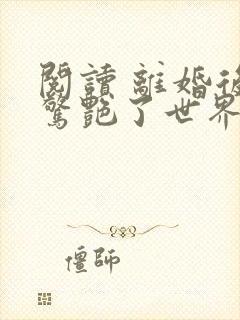 閱讀 離婚後
驚艷了世界
僵師